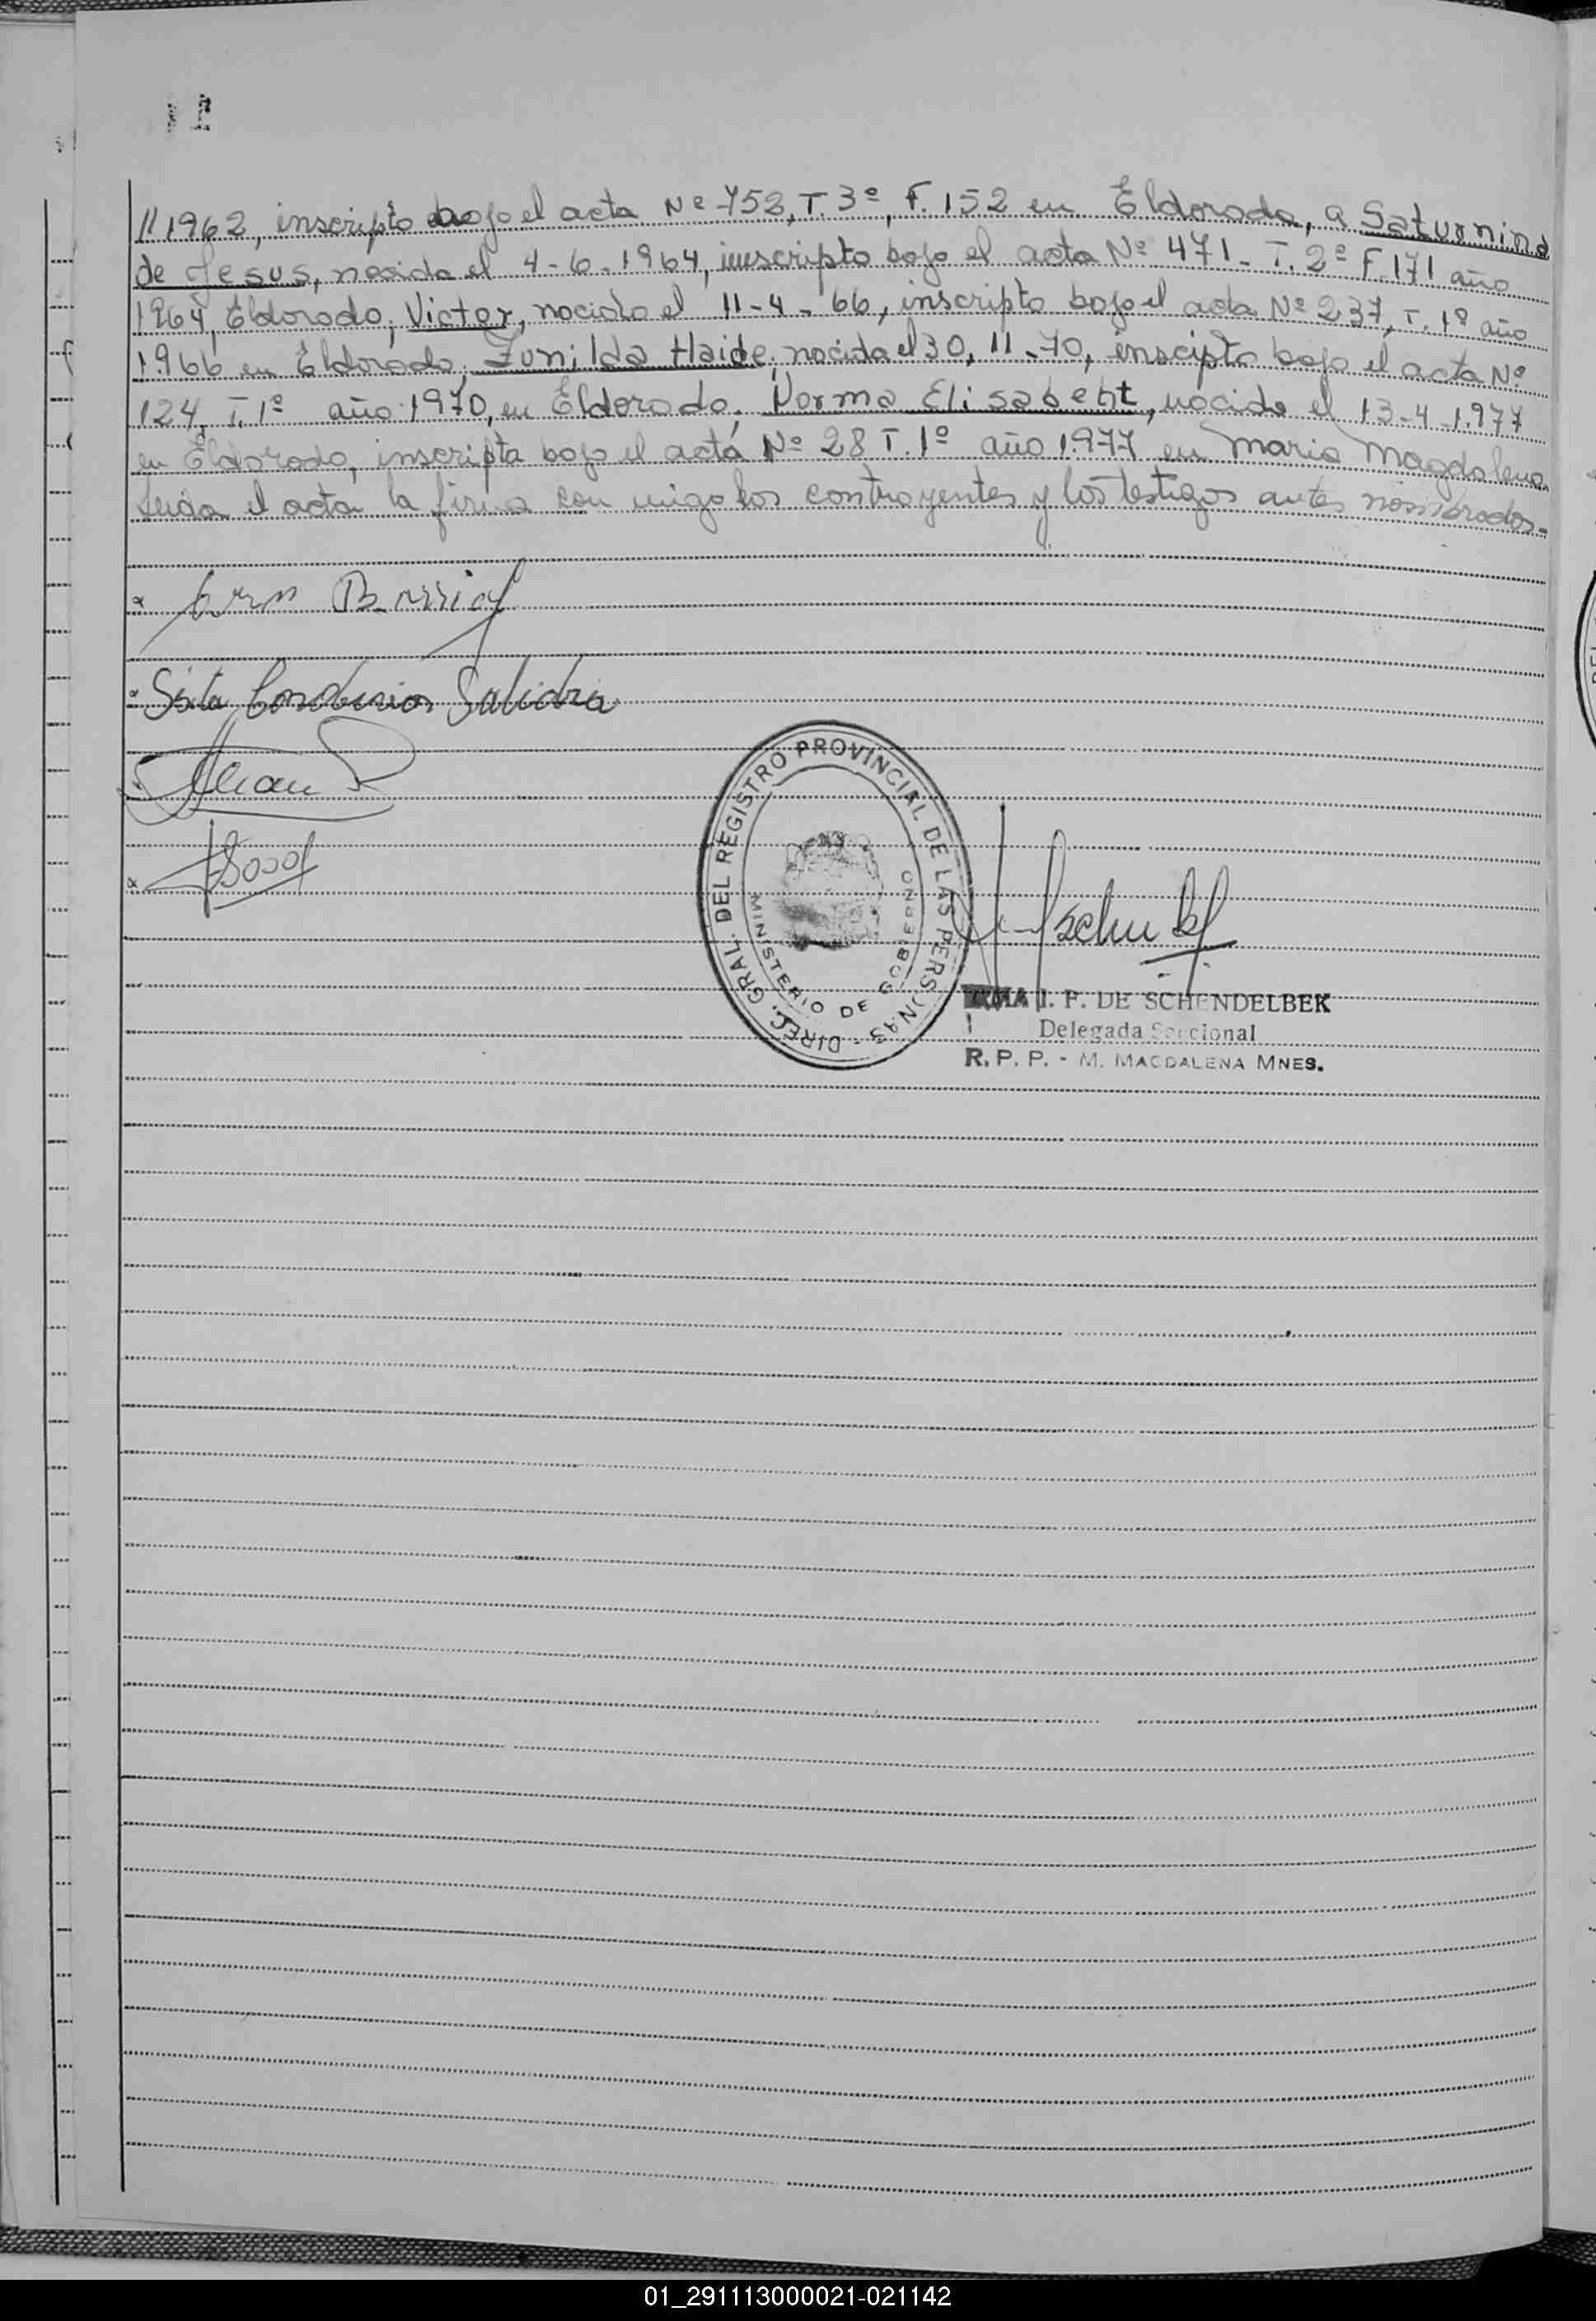 // 1962, inscripto bajo el acta Nº 752, T. 3º, F. 152 en Eldorado, a Saturnino
de Jesus, nacido el 4-6-1964, inscripto bajo el acta Nº 471- T. 2º F. 171 año
1964, Eldorado; Victor, nacido el 11-4-66, inscripto bajo el acta Nº 237, T. 1º año
1966 en Eldorado, Zunilda Haide, nacida el 30, 11-70, inscipta bajo el acta Nº
124, T. 1º año 1970, en Eldorado, Norma Elisabeht, nacida el 13-4-1.977
en Eldorado, inscripta bajo el acta Nº 28 T. 1º año 1.977 en Maria Magdalena
Leida el acta la firma con migo los contrayentes y los testigos antes nombrados.-
Sixta Saldivia
DIREC. GRAL. DEL REGISTRO PROVINCIAL DE LAS PERSONAS -
MINISTERIO DE GOBIERNO
I. F. DE SCHENDELBEK
Delegada Seccional
R. P. P. - M. MAGDALENA MNES.
01_291113000021-021142